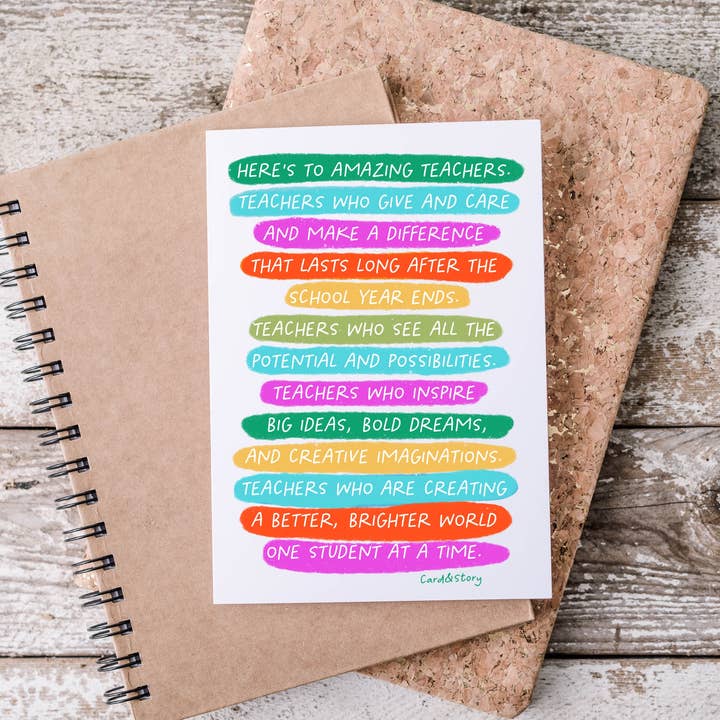 HERE'S TO AMAZING TEACHERS.
TEACHERS WHO GIVE AND CARE
AND MAKE A DIFFERENCE
THAT LASTS LONG AFTER THE
SCHOOL YEAR ENDS.
TEACHERS WHO SEE ALL THE
POTENTIAL AND POSSIBILITIES.
TEACHERS WHO INSPIRE
BIG IDEAS, BOLD DREAMS,
AND CREATIVE IMAGINATIONS.
TEACHERS WHO ARE CREATING
A BETTER, BRIGHTER WORLD
ONE STUDENT AT A TIME.
Card&Story